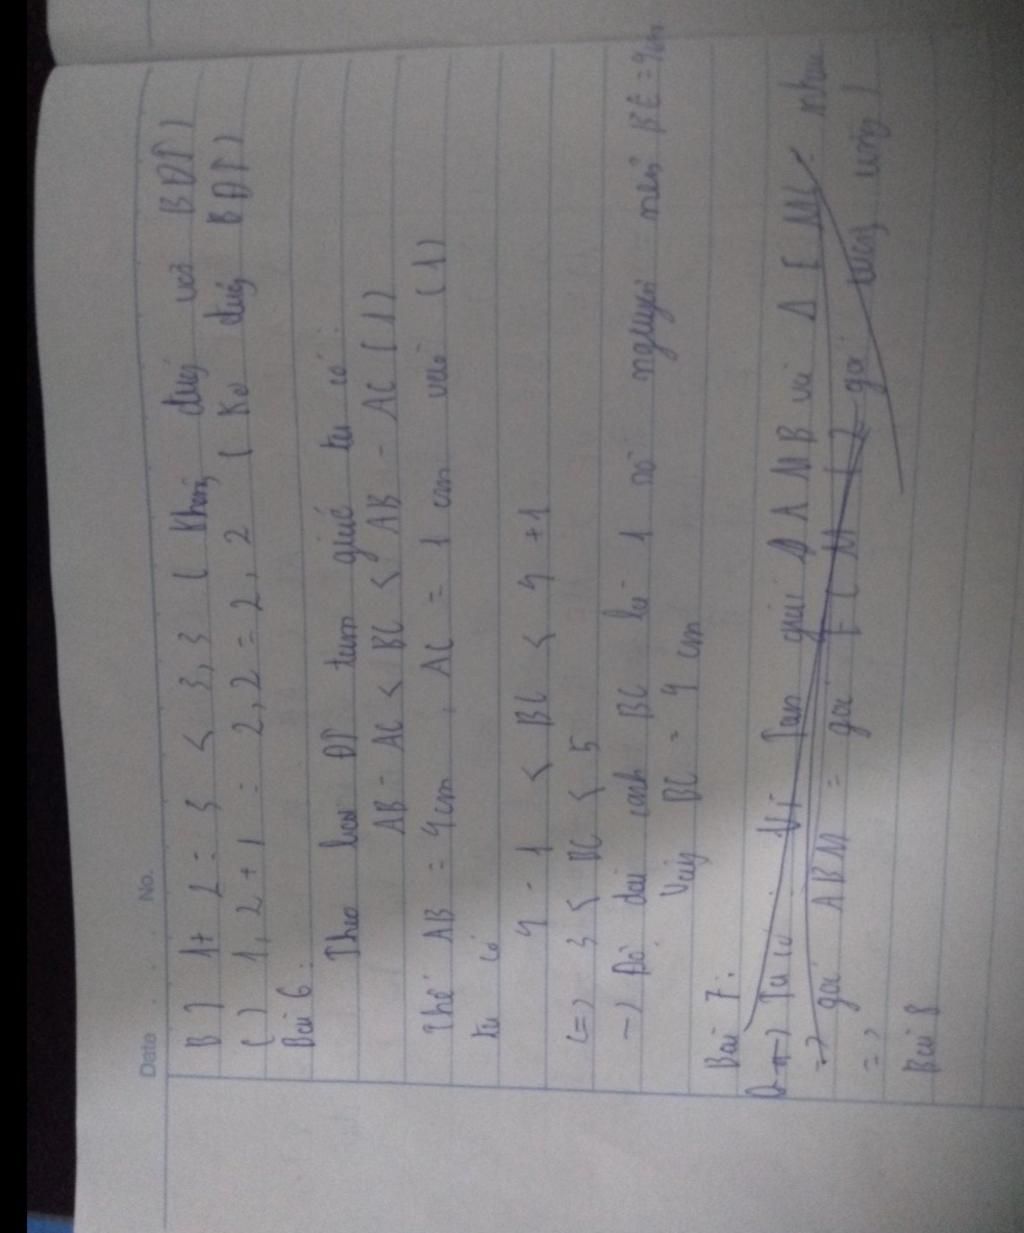 Date No.
B) 1+ 2 = 3 < 3,3 ( Không đúng với BĐT)
C) 1,2 + 1 = 2,2 = 2,2 ( Ko đúng BĐT)
Bài 6:
Theo bđt ĐT tam giác ta có:
AB - AC < BC < AB - AC (1)
Thế AB = 4cm, AC = 1 cm vào (1)
ta có
4 - 1 < BC < 4 +1
(=) 3 < BC < 5
-) Độ dài cạnh BC là 1 số nguyên nên BC = 4cm
Vậy BC = 4 cm
Bài 7:
-) Ta có: Vì Tam giác AMB và Δ
=) góc ABM = góc
=) góc tương ứng)
Bài 8